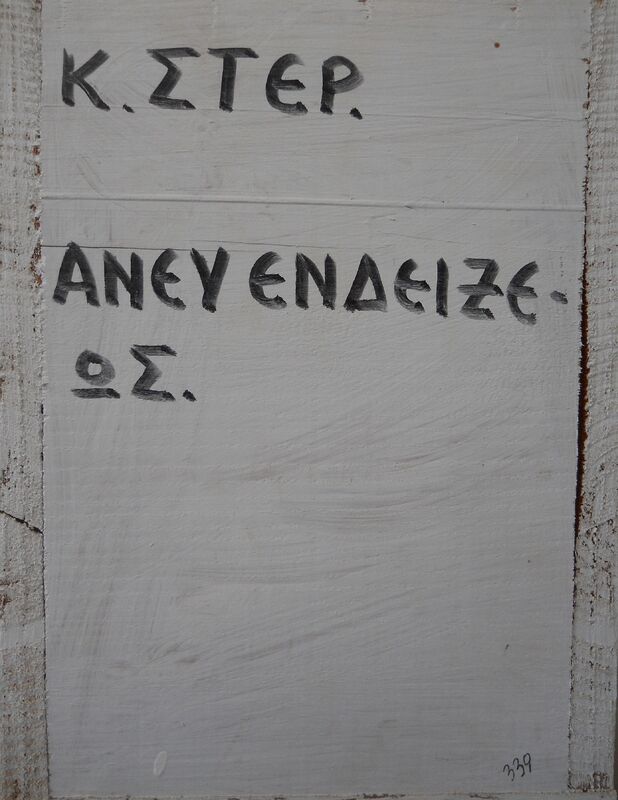 Κ. ΣΤΕΡ.
ΑΝΕΥ ΕΝΔΕΙΞΕ-
ΩΣ.
339